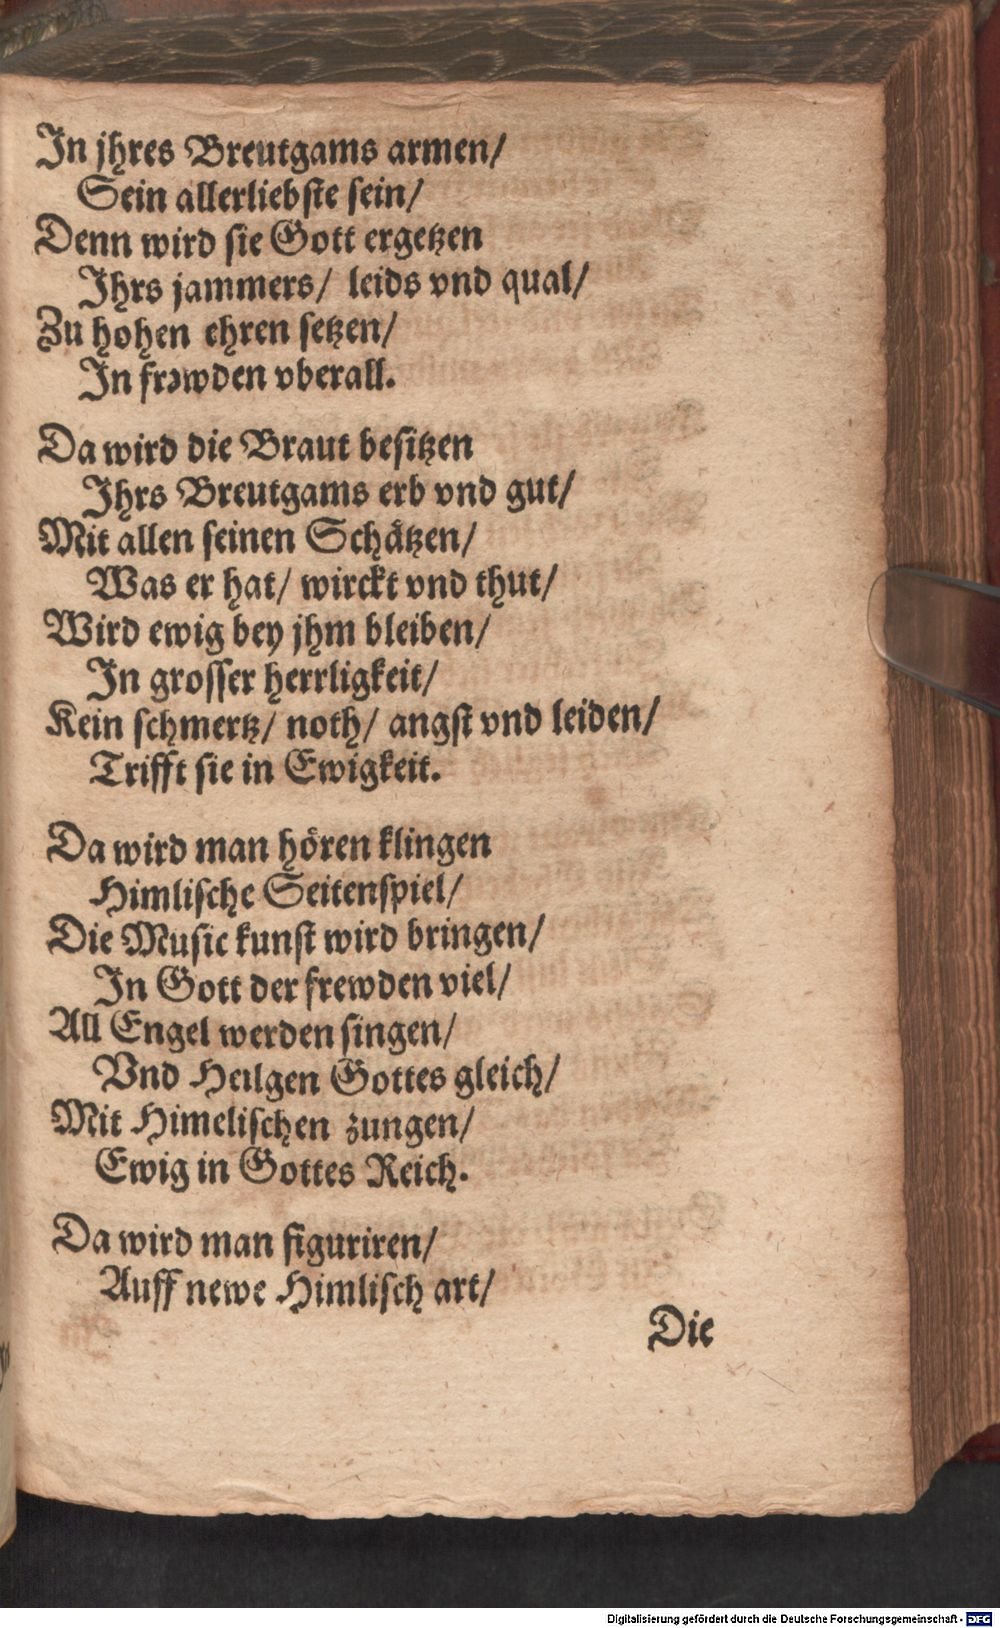 In jhres Breutgams armen/
Sein allerliebste sein/
Denn wird sie Gott ergetzen
Ihrs jammers/ leids vnd qual/
Zu hohen ehren setzen/
In frəwden vberall.
Da wird die Braut besitzen
Ihrs Breutgams erb vnd gut/
Mit allen seinen Schåtzen/
Was er hat/ wirckt vnd thut/
Wird ewig bey jhm bleiben/
In grosser herrligkeit/
Kein schmertz/ noth/ angst vnd leiden/
Trifft sie in Ewigkeit.
Da wird man hören klingen
Himlische Seitenspiel/
Die Music kunst wird bringen/
In Gott der frewden viel/
All Engel werden singen/
Vnd Heilgen Gottes gleich/
Mit Himelischen zungen/
Ewig in Gottes Reich.
Da wird man figuriren/
Auff newe Himlisch art/
Die
Digitalisierung gefördert durch die Deutsche Forschungsgemeinschaft - DFG